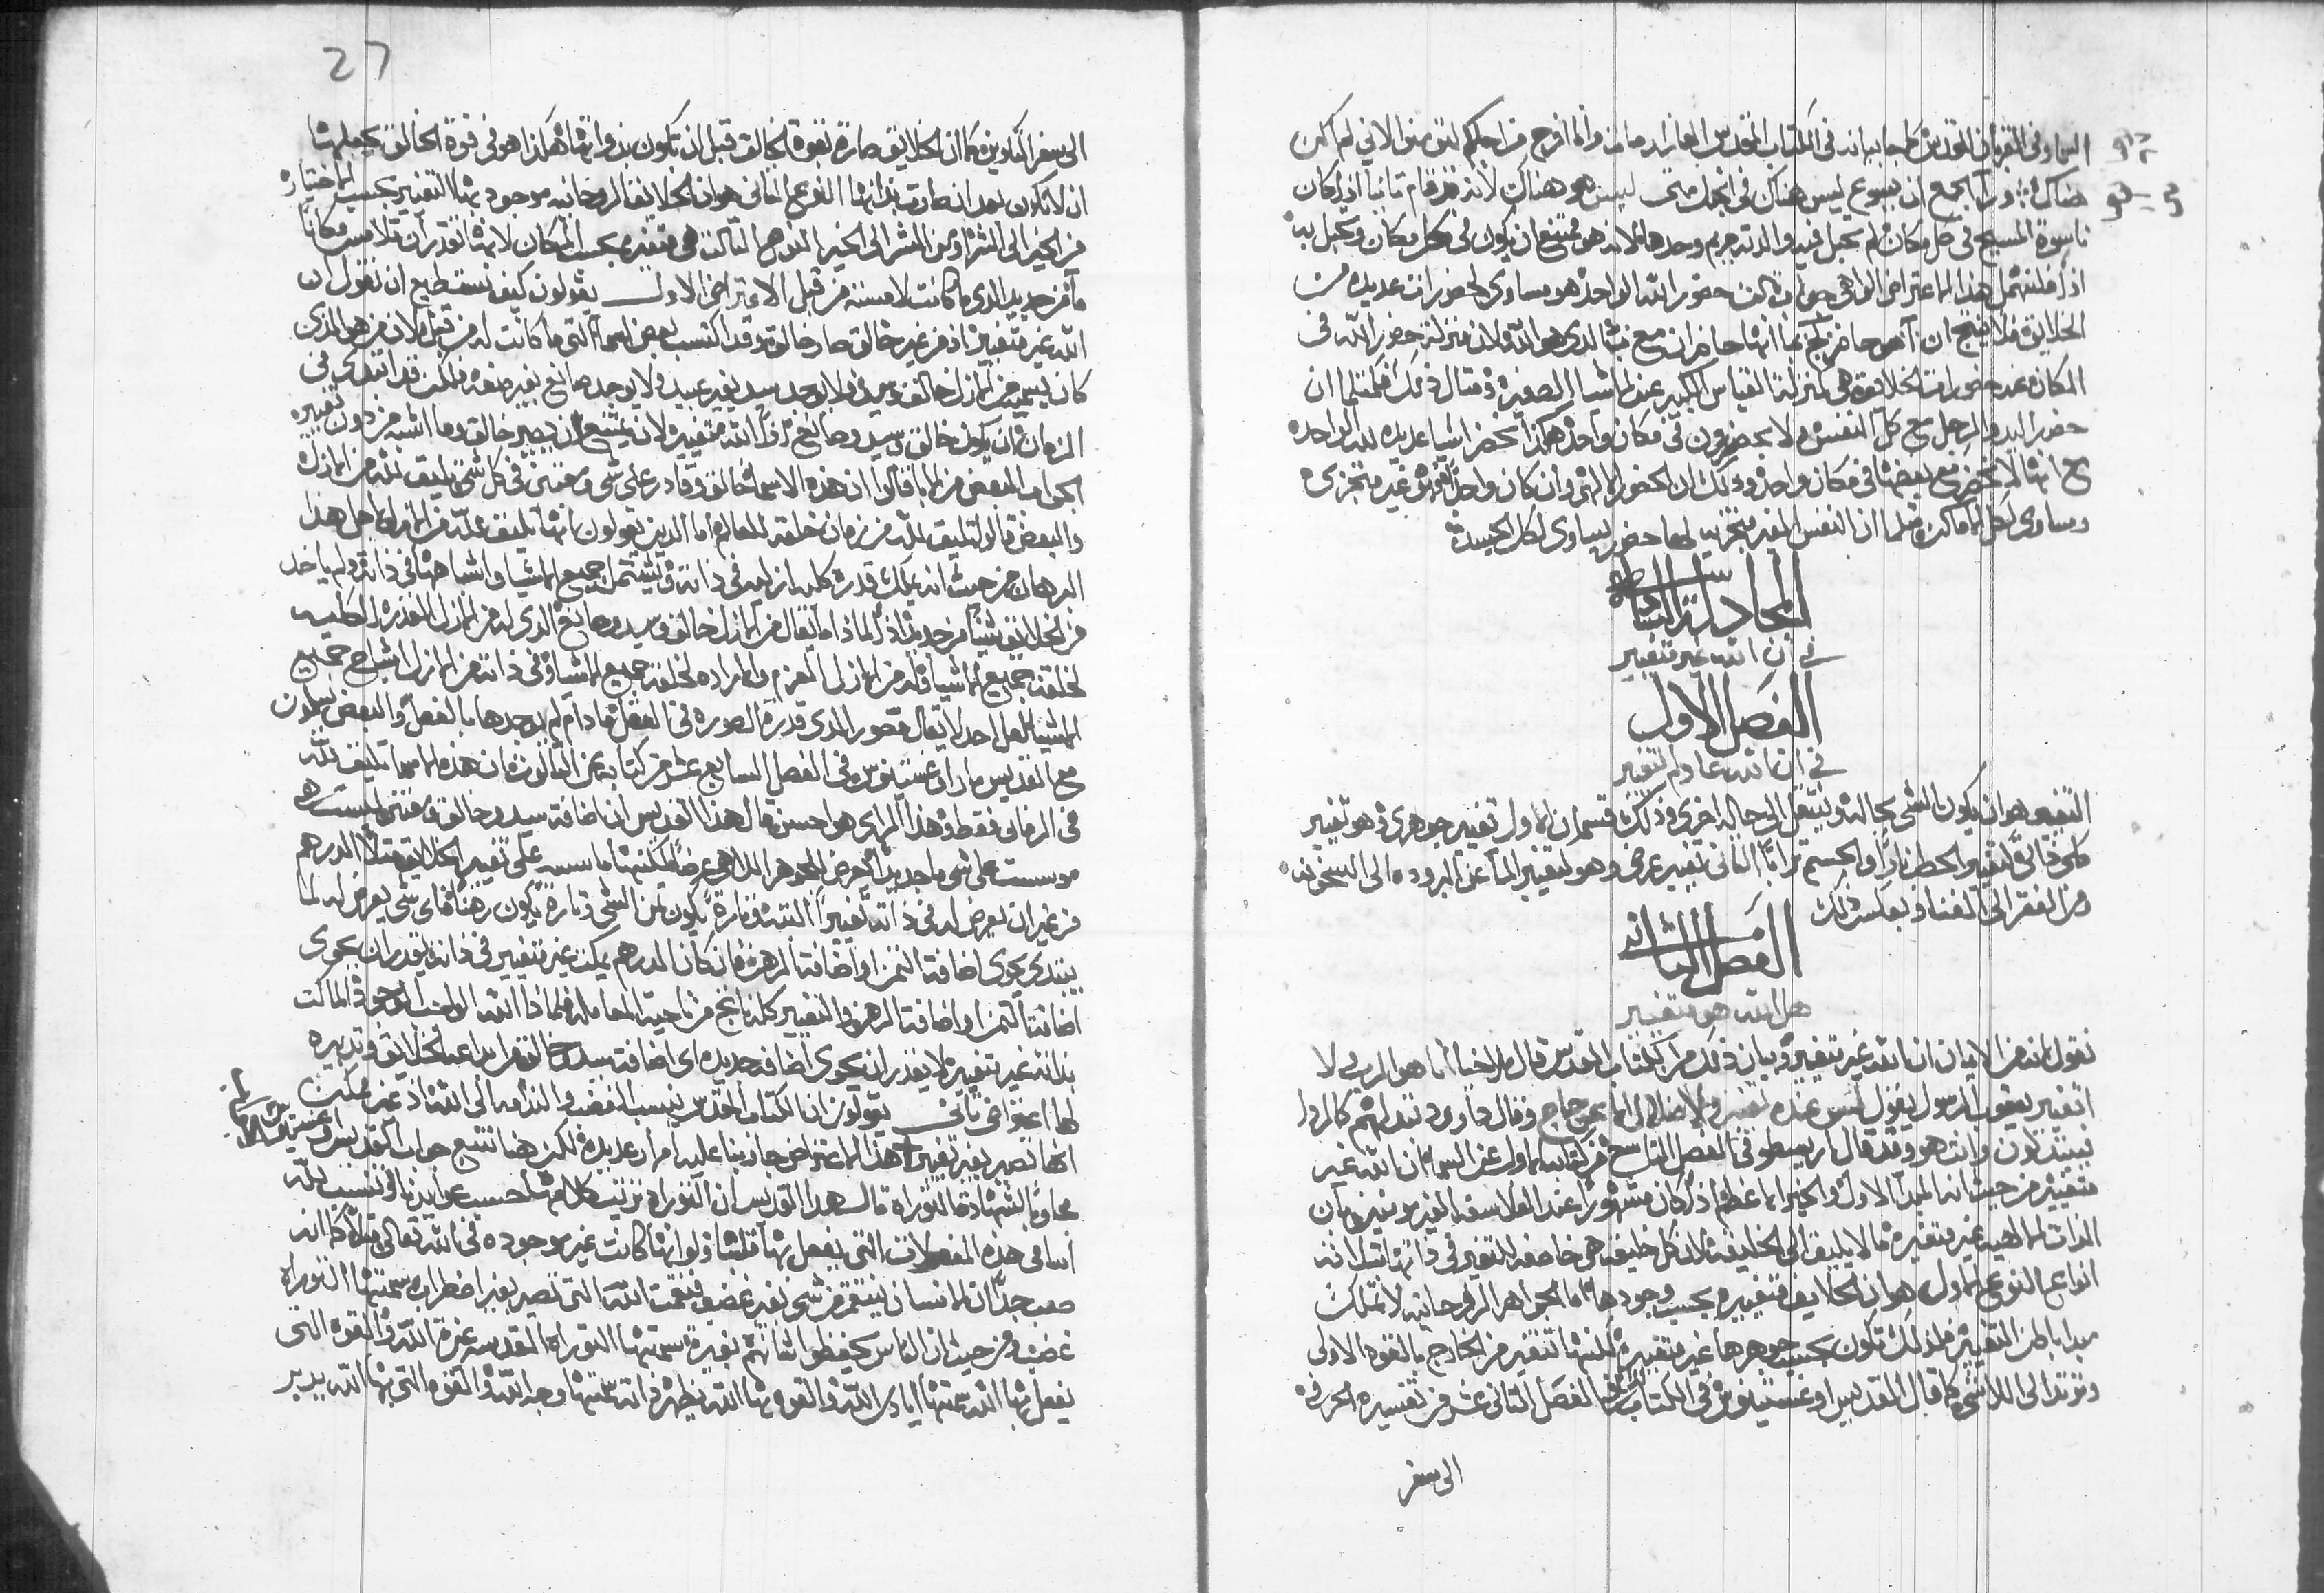 السما وفي القربان المقدس كما جا بيانه في الكتاب المقدس العازر مات وانا افرح من اجلكم لتومنوا لاني لم اكن
هناك ورا الجمع ان يسوع ليس هناك في انجيل متى ليس هو هناك لانه قد قام ثانيا اذا كان
ناسوة المسيح في كل مكان لم يحبل فيه والدته مريم وحدها لانه هو ممتنع ان يكون في كل مكان ويحبل به
اذا فلنهمل هذا الاعتراض الواهي جواب ثالث حضور الله الواحد هو مساوي لحضورات عديده من
الخلايق فلا ينتج ان حاضر انها حاضران مع الذي هو الله ولان منزلة حضور الله في
المكان عند حضورات الخلايق هي كمنزلة القياس الكبير عند الاشيا الصغيره ومثال ذلك فكمثلما ان
حضور اليد والرجل مع كل النفس ولا يحضرون في مكان واحد هكذا يحضر اشيا عديده لله الواحده
مع انها لا تحضر مع بعضها في مكان واحد وذلك ان الحضور الالهي وان كان واحدا فهو غير متجزي
ومساوي لكل الاماكن مثلما ان النفس الغير متجزيه لها حضور يساوي لكل الجسد
المجادلة السادسه
في ان الله غير متغيير
الفصل الاول
في ان الله عادم التغيير
التغيير هو ان يكون الشي بحالة وينتقل الى حاله اخرى وذلك قسمان الاول تغيير جوهري وهو تغيير
كلي ذاتي كتغيير الحطب نارا والجسم ترابا الثاني تغيير عرضي وهو كتغيير الما عن البروده الى السخونه
ومن الفقر الى الغنا وبعكس ذلك
الفصل الثاني
هل الله هو متغيير
نقول انه من الايمان ان الله غير متغيير وبيان ذلك من الكتاب المقدس قال ملاخيا انا هو الرب لا
اتغيير يعقوب الرسول يقول ليس عنده تغيير ولا ضلال وقال داوود تبدلهم كالردا
فيتبدلون وانت هو وقد قال ارسطو في الفصل التاسع من كتابه الاول عن السما ان الله غير
متغيير من حيث انه المبدا الاول والخير الاعظم اذا كان مشهورا عند الفلاسفه الغير مومنين بان
الذات الالهيه غير متغيره مما لا يليق الى الخليقه لان كل خليقه هي خاضعه للتغيير في ذاتها ثلاثة
انواع النوع الاول هو ان الخلايق متغييره بحسب وجودها اما الجواهر الروحانيه لا تملك
مبدا باطن التغيير فلذلك تكون بحسب جوهرها غير متغييره لكنها تتغير من الخارج بالقوه الاولى
وترتد الى اللاشي كما قال القديس اوغسطينوس في الكتاب الفصل الثاني عشر من تفسيره المحرر
الى سفر
27
الى سفر التكوين كما ان الخلايق صارة بقوة الخالق قبل ان تكون بذواتها هكذا هو في قوة الخالق بجعلها
ان لا تكون بعد ان صارت بذاتها النوع الثاني هو ان الخلايق الروحانيه موجود بها التغيير بحسب الاختيار
من الخير الى الشر او من الشر الى الخير النوع الثالث هي متغييره بحسب المكان لانها تقدر ان تلامس مكانا
ما من جديد الذي ما كانت لامسته من قبل الاعتراض الاول يقولون كيف نستطيع ان نقول ان
الله غير متغيير اذ من غير خالق صار خالق وقد اكتسب بعض اسما التي ما كانت له من قبل لان من هو الذي
كان يسمى من الازل خالق وسيد ولا يوجد سيد بغير عبيد ولا يوجد صانع بغير صنعه ولكن قد ابتدى في
الزمان ان يكون خالق وسيد وصانع اذا الله متغيير لانه يمتنع ان يصير خالق وما اشبه من دون تغييره
الجواب البعض من الابا قالوا ان هذه الاسما خالق وقادر على شي ومعتني في كل شي تليق لله من الازل
والبعض قالوا تليق لله من زمان خلقته للعالم اما الذين يقولون بانها تليق لله من الازل لاجل هذا
البرهان من حيث انه يملك قدرة كليه ازليه في ذاته وتشتمل جميع الاشيا واشباهها في ذاته ولم ياخذ
من الخلايق شيا من جديد اذا لماذا ما يقال من الازل خالق وسيد وصانع الذي له من الازل القدره الكليه
لخلقة جميع الاشيا وله من الازل العزم والاراده لخلقة جميع الاشيا وفي ذاته من الازل اشباح جميع
الاشيا لعل احدا لا يقال مصور الذي قدرة الصوره في العقل ما دام لم يوجدها بالفعل والبعض يقولون
مع القديس مار اوغسطينوس في الفصل السابع عشر من كتابه عن الثالوث ان هذه الاسما تليق لله
في الزمان فقط وهذا الراي هو احسن قال هذا القديس ان اضافة سيد وخالق ومعتني ليست
موسست على شي ما جديد العرض للجوهر الالاهي عرضا لكنها ماسسه على تغيير الخلايق مثلا الدرهم
من غير ان يعرض له في ذاته تغييرا البته وتارة يكون ثمن الشي وتارة يكون رهنا فاي شي يعرض له لما
يبتدي يحوي اضافة الثمن او اضافة الرهن فان كان الدرهم يمكن غير متغيير في ذاته يقدر ان يحوي
اضافة الثمن او اضافة الرهن والتغيير كله ناتج من ناحية المعامله فلماذا الله الواجب الوجود المالك
بذاته غير تغييره لا يقدر ان يحوي اضافه جديده اي اضافة سيد وخالق من ابداعه الخلايق وتدبيره
لها اعتراض ثاني يقولون ان الكتاب المقدس ينسب الغضب والندامه الى الله اذ غير ممكن
انها تصير بغير تغيير هذا الاعتراض جاوبنا عليه امرار عديده لكن هنا نتبع جواب القديس اوغسطينوس
محاوي الشهادة التوراة قال هذا القديس ان التوراه ترتيب كلامها حسب عوايدنا وتنسب لله
اسامي هذه المفعولات التي يفعل بها ولو انها كانت غير موجوده في الله تعالى مثلا كما انه
صعب جدا ان الانسان ينتقم من شي بغير غضب فنقمت الله التي تصير بغير اضطراب سمتها التوراه
غضب ومن حيث ان الناس يحفظوا نسائهم بغيرة سمتها التوراة المقدسه غيرة الله والقوه التي
يفعل بها الله سمتها ايادي الله والقوه بها الله يظهر ذاته سمتها وجه الله والقوه التي بها الله يدبر